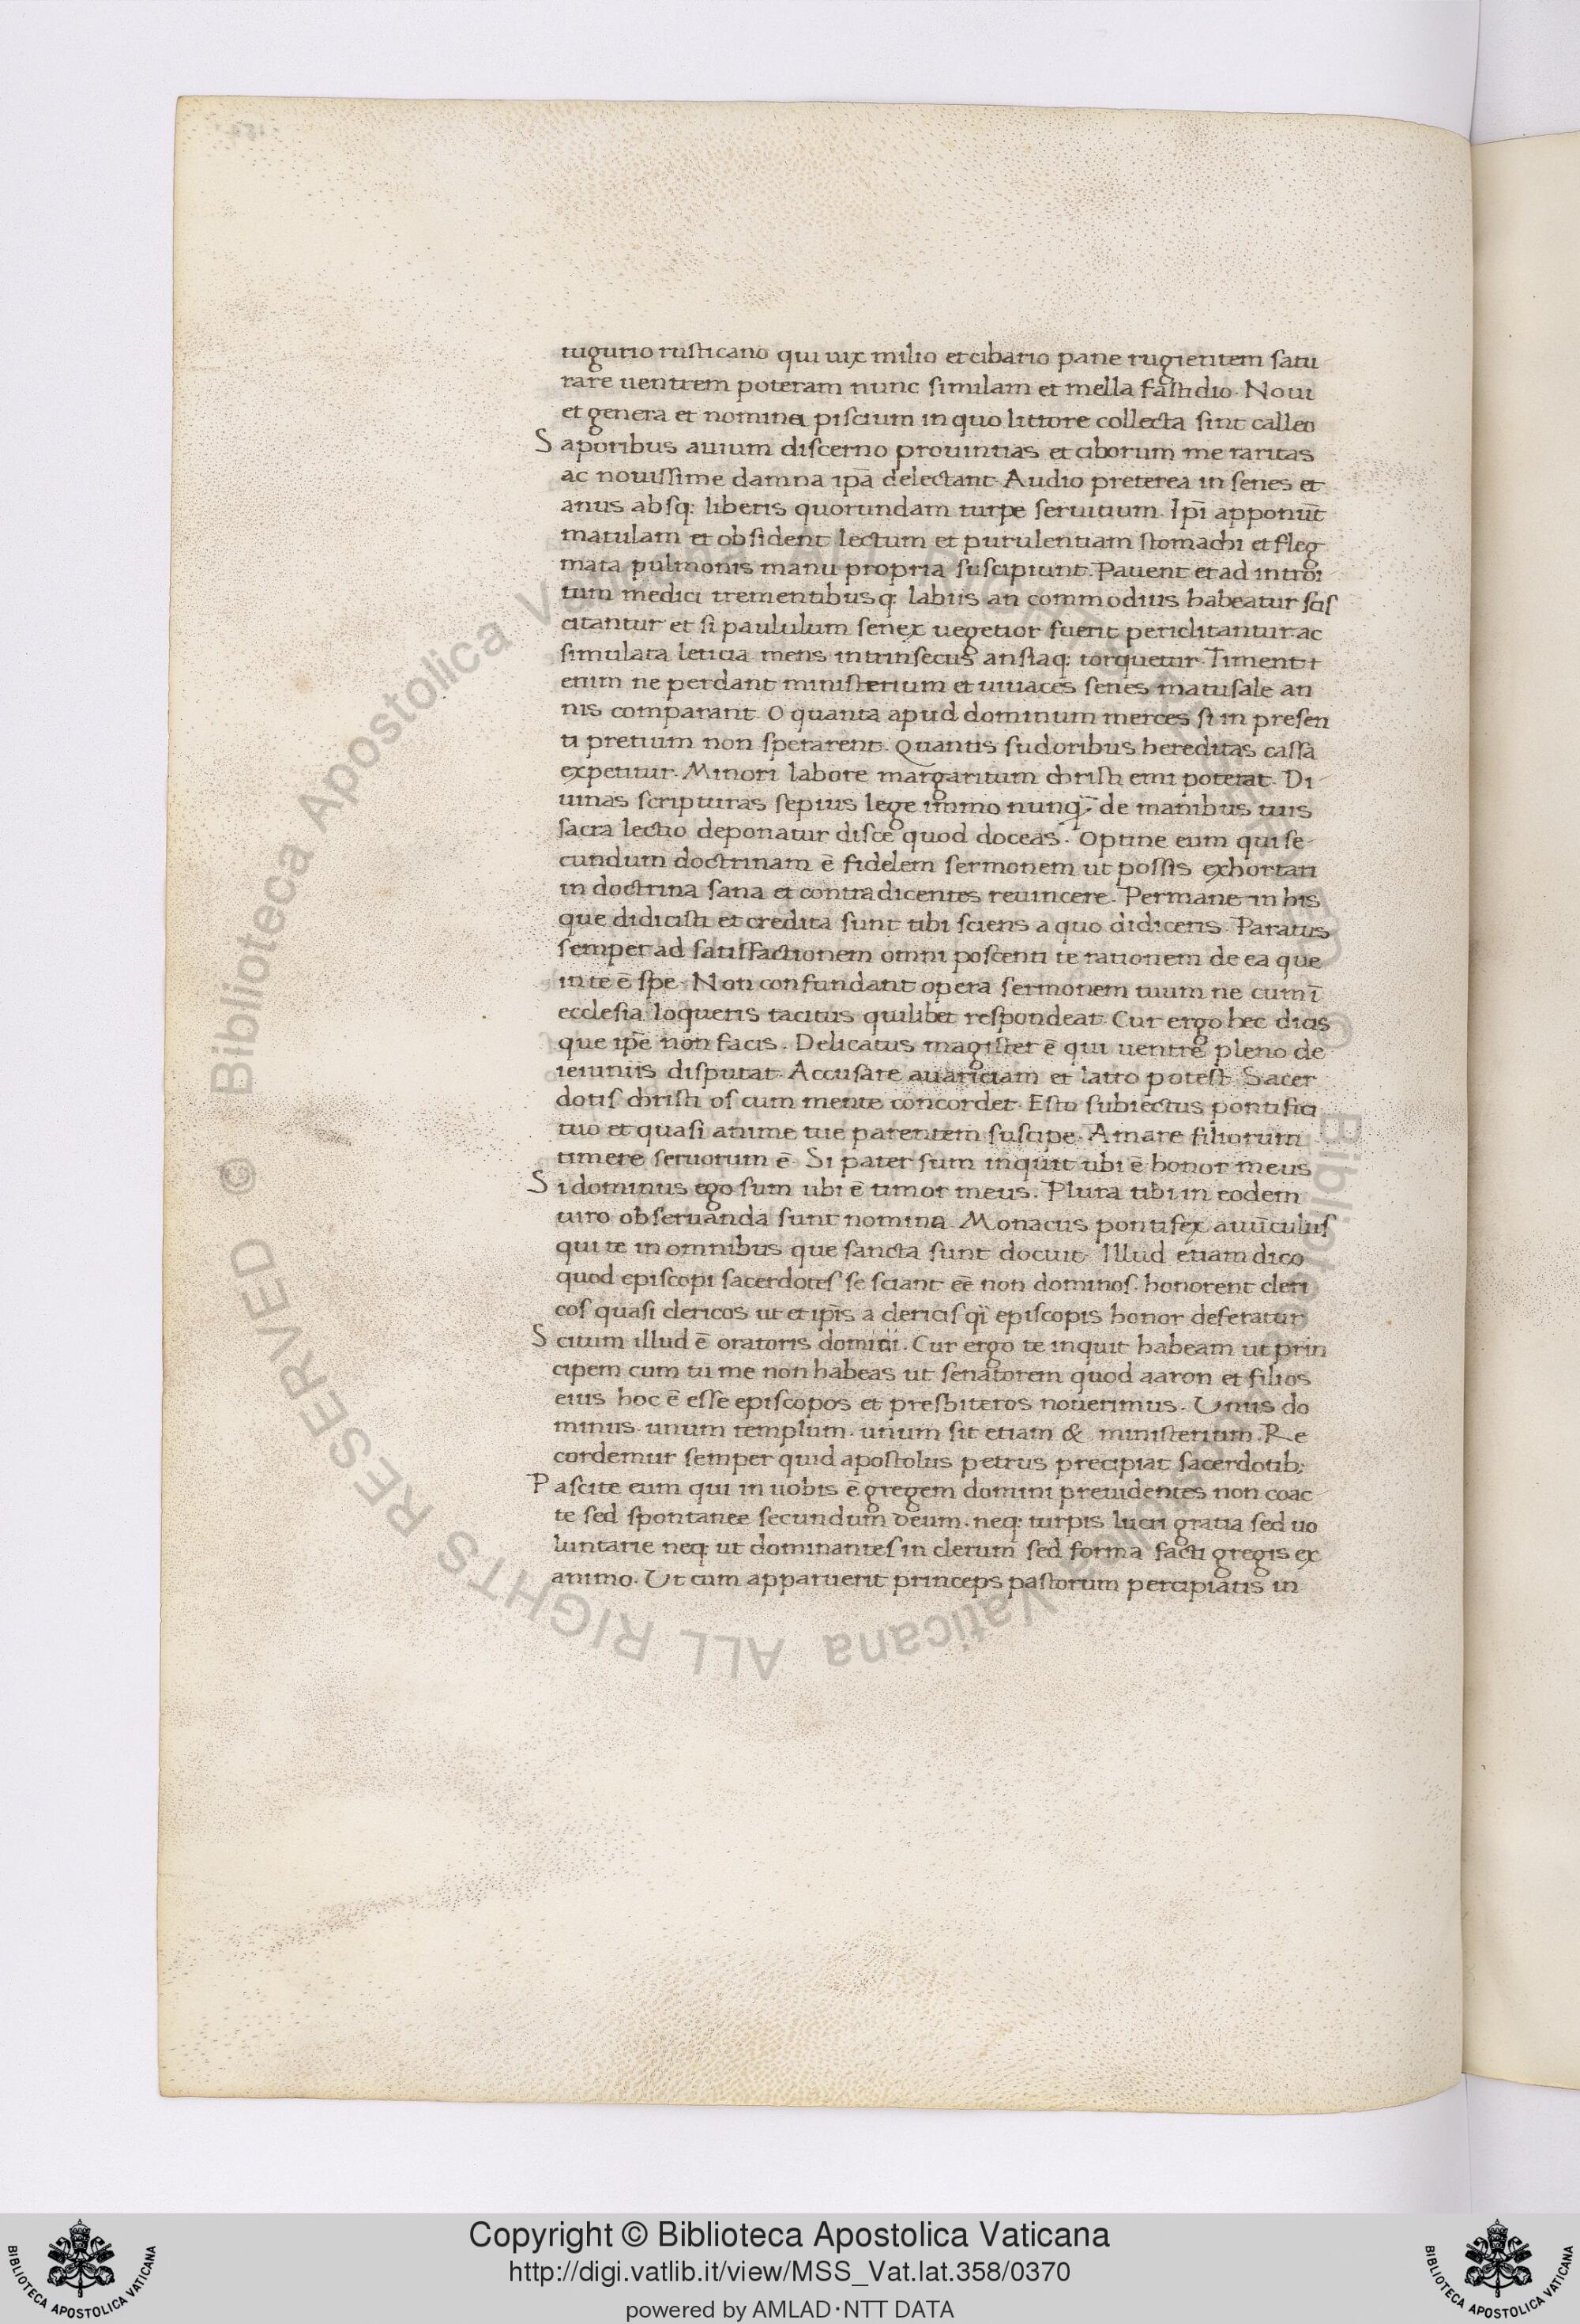 tugurio rusticano qui uix milio et cibario pane rugientem satu
rare uentrem poteram nunc similam et mella fastidio. Noui
et genera et nomina piscium in quo littore collecta sint calleo
Saporibus auium discerno prouintias et ciborum me raritas
ac nouissime damna ip̄a delectant. Audio preterea in senes et
anus absq: liberis quorundam turpe seruitium. Ip̄i apponūt
matulam et obsident lectum et purulentiam stomachi et fleg
mata pulmonis manu propria suscipiunt. Pauent et ad introi
tum medici trementibusq: labiis an commodius habeatur scis
citantur et si paululum senex uegetior fuerit periclitantur. ac
simulata leticia mens intrinsecus anstaq: torquetur. Timent
enim ne perdant ministerium et uiuaces senes matusale an
nis comparant. O quanta apud dominum merces si in presen
ti pretium non sperarent. Quantis sudoribus hereditas cassa
expetitur. Minori labore margaritum christi emi poterat. Di
uinas scripturas sepius lege immo nunq̄ de manibus tuis
sacra lectio deponatur disce quod doceas. Optine eum qui se
cundum doctrinam ē fidelem sermonem ut possis exhortari
in doctrina sana et contradicentes reuincere. Permane in his
que didicisti et credita sunt tibi sciens a quo didiceris. Paratus
semper ad satisfactionem omni poscenti te rationem de ea que
in te ē spe. Non confundant opera sermonem tuum ne cum ī
ecclesia loqueris tacitus quilibet respondeat. Cur ergo hec dicis
que ip̄e non facis. Delicatus magister ē qui uentre pleno de
ieiuniis disputat. Accusare auariciam et latro potest. Sacer
dotis christi os cum mente concordet. Esto subiectus pontifici
tuo et quasi anime tue parentem suscipe. Amare filiorum
timere seruorum ē. Si pater sum inquit ubi ē honor meus
Si dominus ego sum ubi ē timor meus. Plura tibi in eodem
uiro obseruanda sunt nomina. Monacus pontifex auūculus
qui te in omnibus que sancta sunt docuit. Illud etiam dico
quod episcopi sacerdotes se sciant eē non dominos. honorent cleri
cos quasi clericos ut et ip̄is a clericis qi episcopis honor deferatur
Scitum illud ē oratoris domitii. Cur ergo te inquit habeam ut prin
cipem cum tu me non habeas ut senatorem quod aaron et filios
eius hoc ē esse episcopos et presbiteros nouerimus. Unus do
minus. unum templum. unum sit etiam & ministerium. Re
cordemur semper quid apostolus petrus precipiat sacerdotib;
Pascite eum qui in uobis ē gregem domini preuidentes non coac
te sed spontanee secundum deum. neq: turpis lucri gratia sed uo
luntarie neq: ut dominantes in clerum sed forma facti gregis ex
animo. Ut cum apparuerit princeps pastorum percipiatis in
© Biblioteca Apostolica Vaticana ALL RIGHTS RESERVED
Copyright © Biblioteca Apostolica Vaticana
http://digi.vatlib.it/view/MSS_Vat.lat.358/0370
powered by AMLAD·NTT DATA
BIBLIOTECA APOSTOLICA VATICANA
BIBLIOTECA APOSTOLICA VATICANA